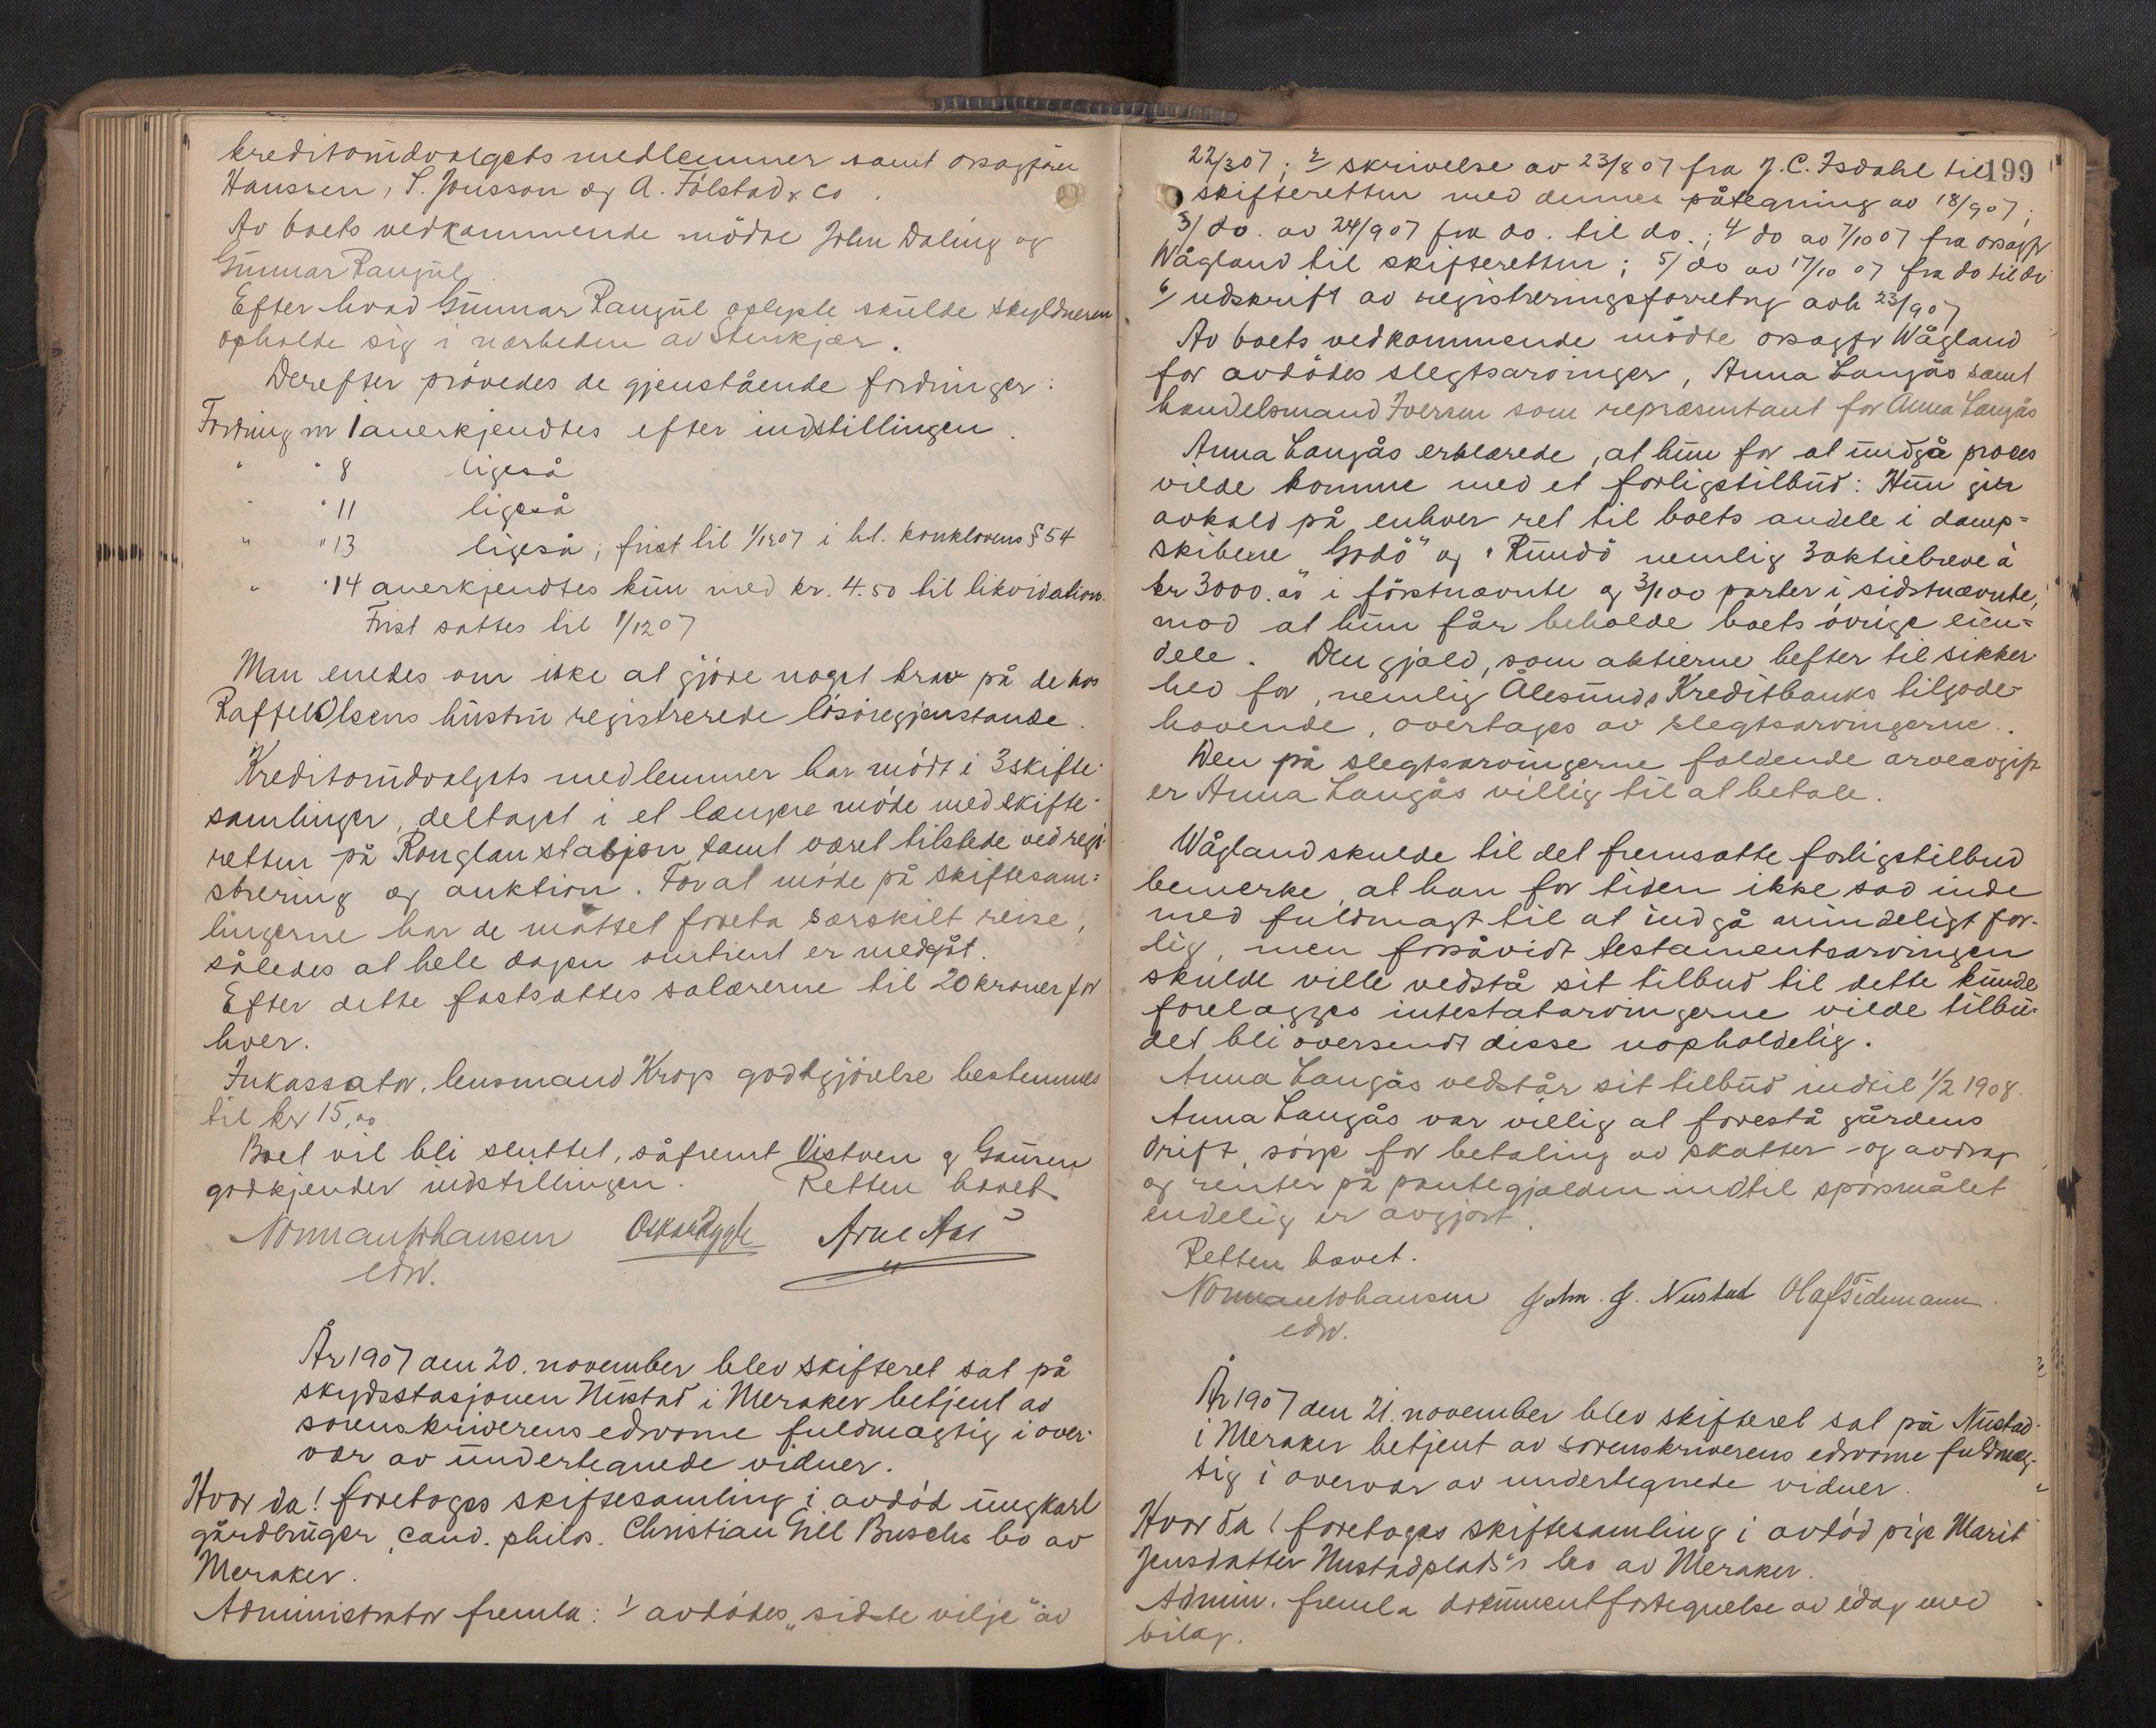 kreditorudvalgets medlemmer samt orsagförer
Hanssen, S. Jonsson og A. Fölstad & Co.
Av boets vedkommende mödte John Daling og
Gunnar Rangul
Efter hvad Gunnar Rangul oplyste skulde skyldneren
opholde sig i nærheden av Stenkjær.
Derefter prövedes de gjenstående fordringer:
Fordring nr 1 anerkjendtes efter indstillingen.
" " 8 ligeså
" " 11 ligeså
" " 13 ligeså; frist til 1/1207 i hl. konklovens § 54
" " 14 anerkjendtes kun med kr. 4.50 til likvidation.
Frist sattes til 1/1207
Man enedes om ikke at gjöre noget krav på de hos
Raffel Olsens hustru registrerede lösöregjenstande.
Kreditorudvalgets medlemmer har mödt i 3 skifte-
samlinger, deltaget i et længere möde med skifte-
retten på Ronglan stasjon samt været tilstede ved regi-
strering og auktion. For at möde på skiftesam-
lingerne har de måttet foreta særskilt reise,
således at hele dagen omtrent er medgåt.
Efter dette fastsattes salærerne til 20 kroner for
hver.
Inkassator, lensmand Krogs godtgjörelse bestemmes
til kr 15,00
Boet vil bli sluttet, såfremt Vistven & Gausen
godkjender indstillingen. Retten hævet
Norman Johansen Oskar Rygh Arne Aas
edsv.
År 1907 den 20. november blev skifteret sat på
skydsstasjonen Nustad i Meraker betjent av
sorenskriverens edsvorne fuldmægtig i over-
vær av undertegnede vidner.
Hvor da! foretoges skiftesamling i avdöd ungkarl
gårdbruger, cand. philos. Christian Gill Buschs bo av
Meraker.
Administrator fremla: 1/ avdödes „sidste vilje" av
199
22/307; 2/ skrivelse av 23/807 fra J. C. Isdahl til
skifteretten med dennes påtegning av 18/907;
3/ do. av 24/907 fra do. til do.; 4/ do av 7/1007 fra orsagfr
Wågland til skifteretten; 5/ do av 17/10 07 fra do til do
6/ udskrift av registreringsforretng avh 23/907
Av boets vedkommende mödte orsagfr Wågland
for avdödes slegtsarvinger, Anna Langås samt
handelsmand Iversen som repræsentant for Anna Langås
Anna Langås erklærede, at hun for at undgå proces
vilde komme med et forligstilbud: Hun gir
avkald på enhver ret til boets andele i damp-
skibene "Godö" og "Rundö" nemlig 3 aktiebreve à
kr 3000.00 i förstnævnte og 3/100 parter i sidstnævnte,
mod at hun får beholde boets övrige eien-
dele. Den gjæld, som aktierne hefter til sikker-
hed for, nemlig Ålesunds Kreditbanks tilgode-
havende, overtages av slegtsarvingerne.
Den på slegtsarvingerne faldende arveavgift
er Anna Langås villig til at betale.
Wågland skulde til det fremsatte forligstilbud
bemerke, at han for tiden ikke sad inde
med fuldmagt til at indgå mindeligt for-
lig, men forsåvidt testamentsarvingen
skulde ville vedstå sit tilbud til dette kunde
forelægges intestatarvingerne vilde tilbu-
det bli oversendt disse uopholdelig.
Anna Langås vedstår sit tilbud indtil 1/2 1908.
Anna Langås var villig at forestå gårdens
drift, sörge for betaling av skatter og avdrag
og renter på pantegjælden indtil spörsmålet
endelig er avgjort.
Retten hævet.
Norman Johansen John. J. Nustad Olaf Tidemann.
edsv.
År 1907 den 21. november blev skifteret sat på Nustad
i Meraker betjent av sorenskriverens edsvorne fuldmæg-
tig i overvær av undertegnede vidner.
Hvor da! foretoges skiftesamling i avdöd pige Marit
Jensdatter Nustadplads's bo av Meraker.
Admin. fremla dokumentfortegnelse av idag med
bilag.